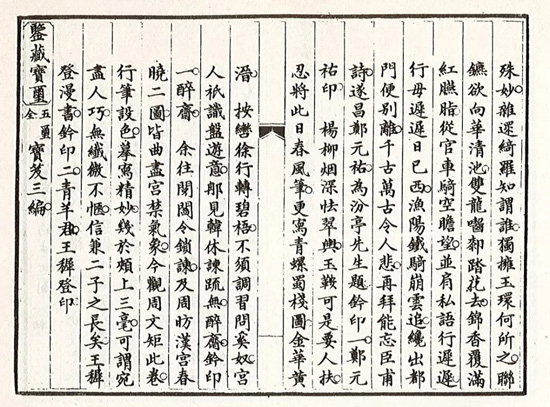 殊妙雜遝綺羅知謂誰獨擁玉環何所之聯
鑣欲向華清池雙龍嚙𨚫踏花去錦香覆滿
紅臙脂從官車騎空瞻望並肩私語行遲遲
行毋遲遲日已西漁陽鐵騎崩雲追纔出都
門便別離千古萬古令人悲再拜能忘臣甫
詩遂昌鄭元祐為汾亭先生題鈐印一鄭元
祐印 楊柳烟深怯翠輿玉鞍可是要人扶
忍將此日春風筆更寫青螺蜀棧圖金華黃
溍 按轡徐行轉碧梧不須調習問奚奴宮
人祇識盤遊意那見韓休諫疏無醉齋鈐印
一醉齋 余往閱閻令鎖諫及周昉漢宮春
曉二圖皆曲盡宮禁氣象今觀周文矩此卷
行筆設色摹寫精妙幾於頰上三毫可謂宛
盡人巧無纖微不愜信兼二子之長矣王穉
登漫書鈐印二青羊君王穉登印
鑒藏寶璽 五璽全 寶笈三編